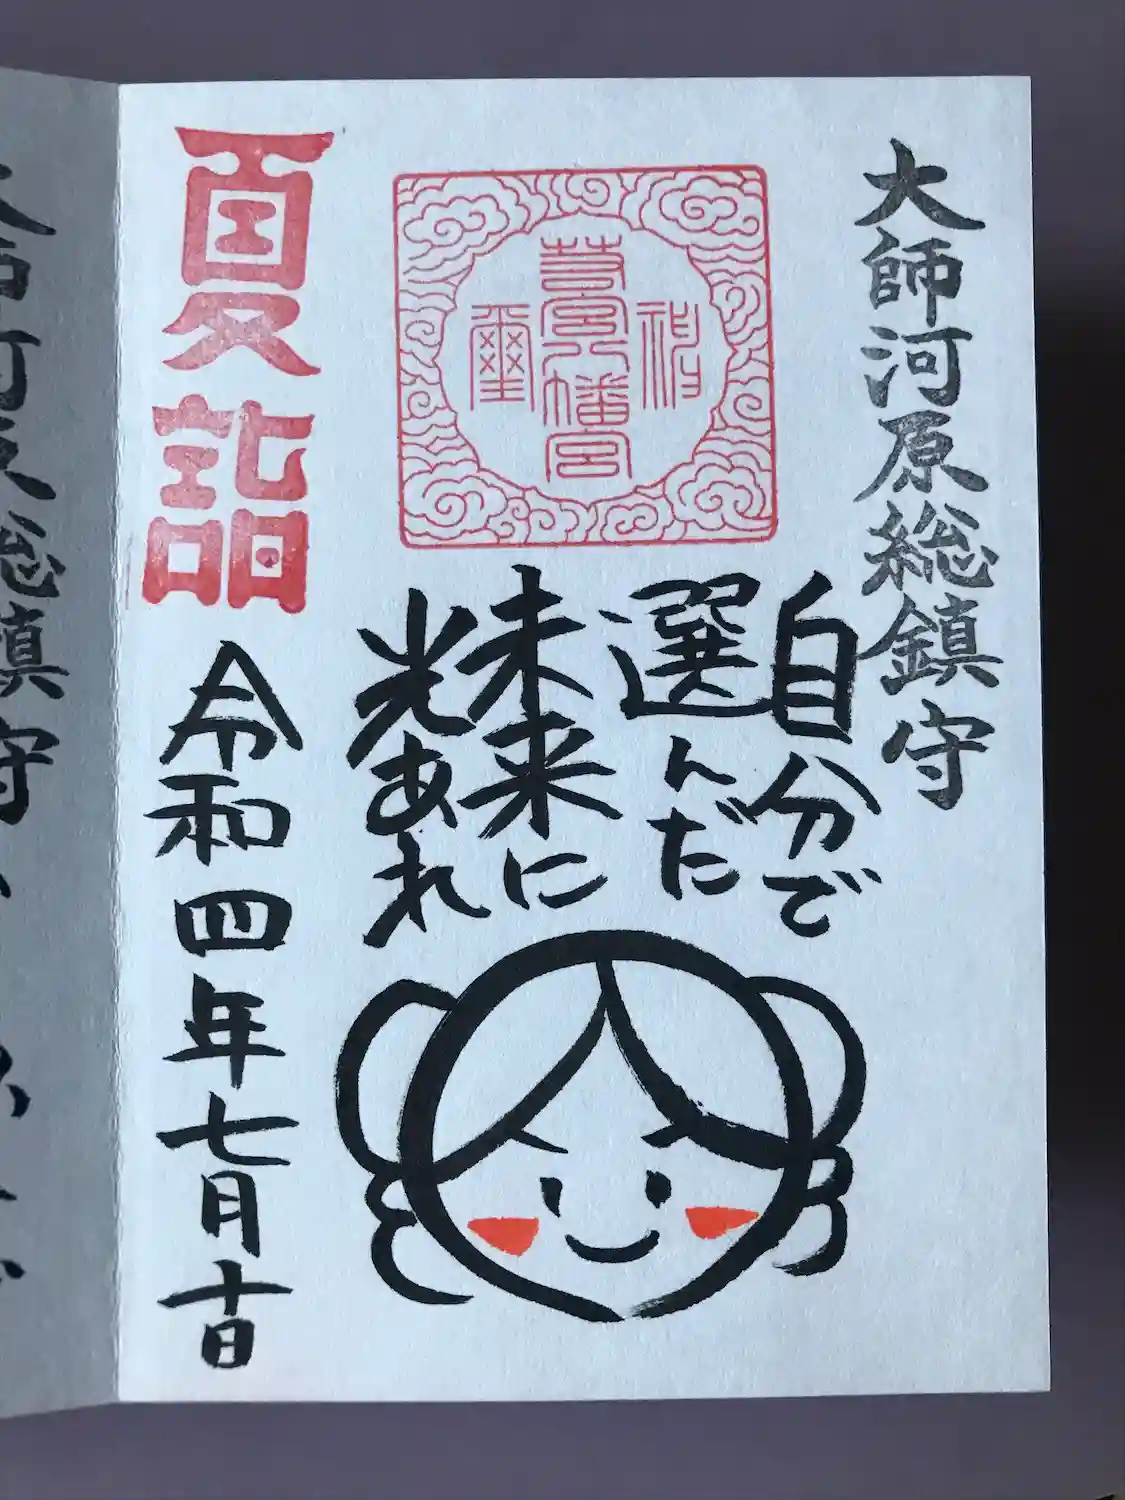 大師河原総鎮守
若宮八幡宮
自分で
選んだ
未来に
光あれ
夏詣
令和四年七月十日